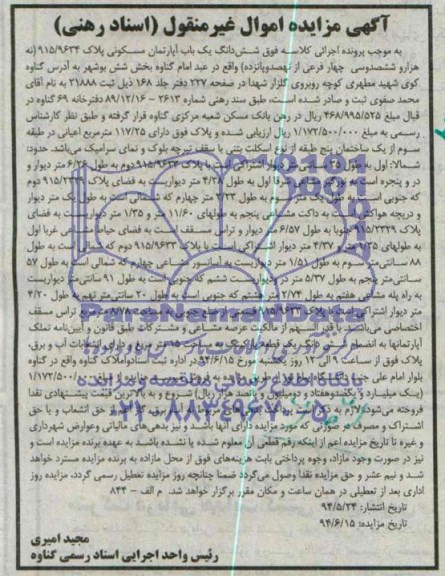 آگهی مزایده اموال غیرمنقول (اسناد رهنی)
به موجب پرونده اجرائی کلاسه فوق شش‌دانگ یک باب آپارتمان مسکونی پلاک ۹۱۵/۹۶۳۴ (نه
هزارو ششصدوسی چهار فرعی از نهصدوپانزده) واقع در عبد امام گناوه بخش شش بوشهر به آدرس گناوه
کوی شهید مطهری کوچه روبروی گلزار شهدا در صفحه ۲۲۷ دفتر جلد ۱۶۸ ذیل ثبت ۲۱۸۸۸ به نام آقای
محمد صفوی ثبت و صادر شده است، طبق سند رهنی شماره ۲۶۱۳ - ۸۹/۱۲/۱۶ دفترخانه ۶۹ گناوه در
قبال مبلغ ۴۶۸/۹۹۵/۵۲۵ ریال در رهن بانک مسکن شعبه مرکزی گناوه قرار گرفته و طبق نظر کارشناس
رسمی به مبلغ ۱/۱۷۲/۵۰۰/۰۰۰ ریال ارزیابی شده و پلاک فوق دارای ۱۱۷/۲۵ مترمربع اعیانی در طبقه
سوم از یک ساختمان پنج طبقه از نوع اسکلت بتنی با سقف تیرچه بلوک و نمای سرامیک می‌باشد. حدود:
شمالا: اول به طول ۳۵ سانتی متر دیوار اشتراکی است با پلاک ۹۱۵/۹۶۳۳ دوم به طول ۶/۲۶ متر دیوار
و در و پنجره است به نورگیر شرقا اول به طول ۴/۲۸ متر دیواریست به فضای پلاک دوم
که جنوبی است به طول یک متر سوم به طول متر چهارم که شمالی است به طول یک متر دیوار
و دریچه هواکش است به داکت مشاعی پنجم به طولهای ۱۱/۶۰ متر و ۱/۳۵ متر دیواریست به فضای
پلاک ۹۱۵/۲۳۲۹ جنوبا به طول ۶/۵۷ دیوار و تراس مسقف است به فضای حیاط مشاعی غربا اول
به طولهای متر و ۴/۳۷ متر دیوار اشتراکی است با پلاک ۹۱۵/۹۶۳۳ دوم که شمالی است به طول
۸۸ سانتی‌متر سوم به طول ۱/۵۱ متر دیواریست به آسانسور مشاعی چهارم که شمالی است به طول ۵۷
سانتی‌متر پنجم به طول ۵/۳۷ متر در و دیواریست ششم که جنوبی است به طول ۹۱ سانتی‌متر دیواریست
به راه پله مشاعی هفتم به طول ۲/۷۳ متر هشتم که جنوبی است به طول ۲۰ سانتی‌متر نهم به طول ۴/۲۰
متر دیوار اشتراکی است با پلاک تراس مسقف
اختصاصی می‌باشد. با قدرالسهم از مالکیت عرصه مشاعی و مشترکات طبق قانون و آیین‌نامه تملک
آپارتمانها به انضمام انباری و دارای انشعابات آب و برق.
پلاک فوق از ساعت ۹ الی ۱۲ روز یکشنبه مورخ ۹۴/۶/۱۵ در اداره ثبت اسنادواملاک گناوه واقع در گناوه
بلوار امام علی ۱/۱۷۲/۵۰۰/۰۰۰
(یک میلیارد و یکصدوهفتاد و دومیلیون و پانصد هزار ریال) شروع و به بالاترین قیمت پیشنهادی نقدا
فروخته می‌شود. لازم به ذکر است حق انشعاب و یا حق
اشتراک و مصرف در صورتی که مورد مزایده دارای آنها باشد و نیز بدهی‌های مالیاتی وعوارض شهرداری
و غیره تا تاریخ مزایده اعم از اینکه رقم قطعی آن معلوم شده یا نشده باشد به عهده برنده مزایده است و
نیز در صورت وجود مازاد، وجوه پرداختی بابت هزینه‌های فوق از محل مازاده به برنده مزایده مسترد خواهد
شد و نیم عشر و حق مزایده نقدا وصول می‌گردد ضمنا چنانچه روز مزایده تعطیل رسمی گردد، مزایده روز
اداری بعد از تعطیلی در همان ساعت و مکان مقرر برگزار خواهد شد. م الف - ۸۴۴
تاریخ انتشار: ۹۴/۵/۲۴
تاریخ مزایده: ۹۴/۶/۱۵
مجید امیری
رئیس واحد اجرایی اسناد رسمی گناوه
پایگاه اطلاع رسانی مناقصه و مزایده
۰۲۱-۸۸۳۴۹۶۷۰-۵